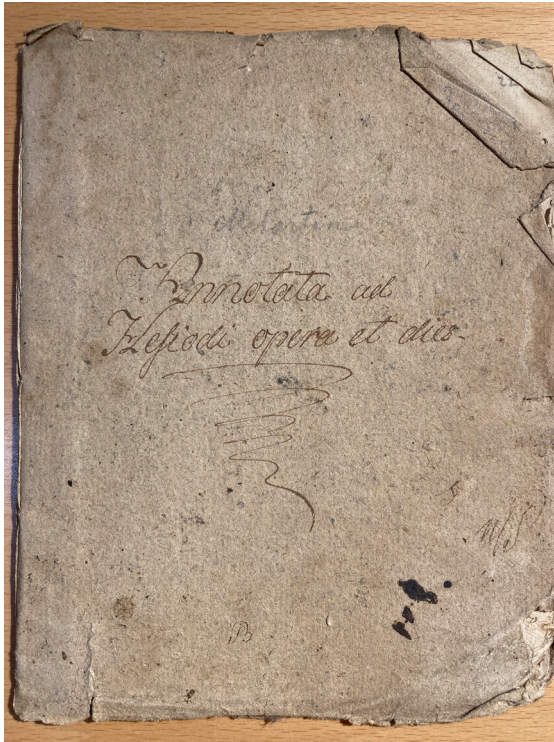 Annotata ad
Hesiodi opera et dies.